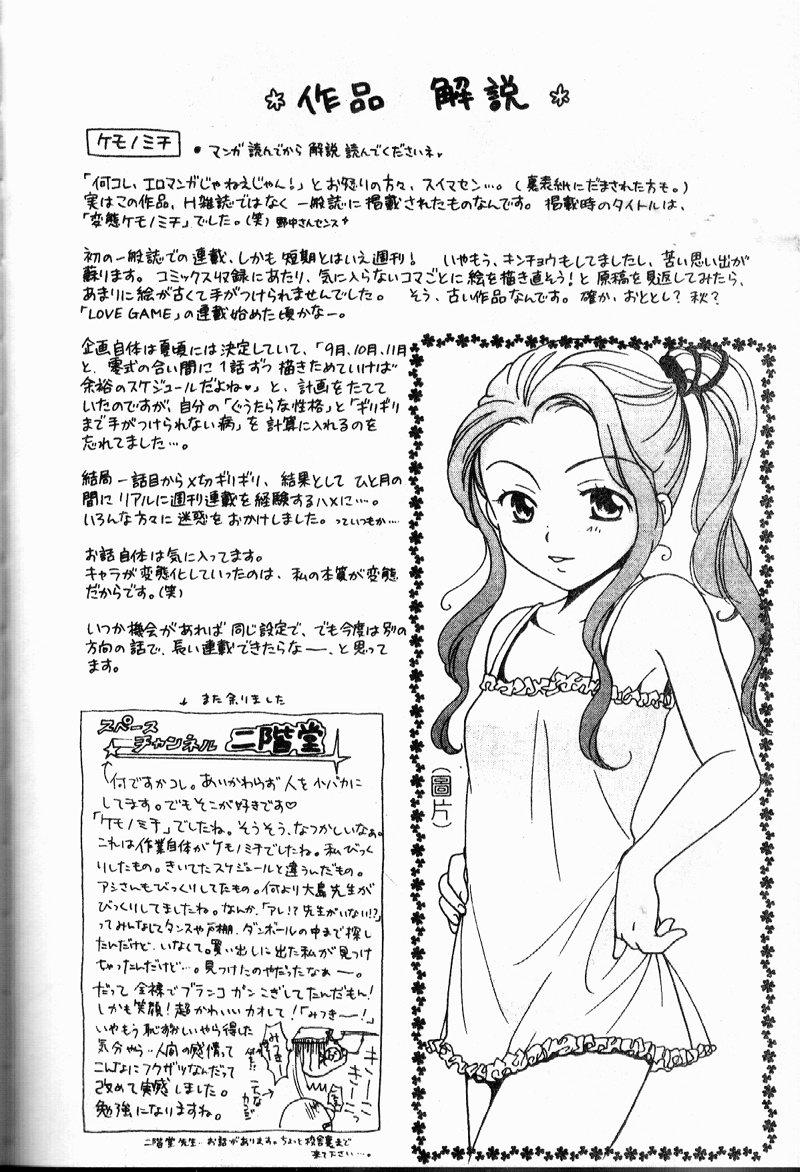 * 作品 解説 *
ケモノミチ
• マンガ読んでから解説読んでくださいネ。
「何コレ、エロマンガじゃねえじゃん！」とお怒りの方々、スイマセン…。(裏表紙にだまされた方も。)
実はこの作品、H雑誌ではなく一般誌に掲載されたものなんです。掲載時のタイトルは、
「変態ケモノミチ」でした。(笑) 野中さんセンス
初の一般誌での連載、しかも短期とはいえ週刊！ いやもう、キンチョウもしてましたし、苦い思い出が
蘇ります。コミックス収録にあたり、気に入らないコマごとに絵を描き直そう！と原稿を見返してみたら、
あまりに絵が古くて手がつけられませんでした。 そう、古い作品なんです。確か、おととし？秋？
「LOVE GAME」の連載始めた頃かなー。
企画自体は夏頃には決定していて、「9月、10月、11月
と、零式の合い間に1話ずつ描きためていけば
余裕のスケジュールだよね♥」と、計画をたてて
いたのですが、自分の「ぐうたらな性格」と「ギリギリ
まで手がつけられない病」を計算に入れるのを
忘れてました…。
結局一話目から〆切ギリギリ、結果としてひと月の
間にリアルに週刊連載を経験するハメに…。
いろんな方々に迷惑をおかけしました。っていつもか…
お話自体は気に入ってます。
キャラが変態化していったのは、私の本質が変態
だからです。(笑)
いつか機会があれば同じ設定で、でも今度は別の
方向の話で、長い連載できたらなー、と思って
ます。
↓ また余りました
スペース
チャンネル 二階堂
何ですかコレ。あいかわらず人を小バカに
してます。でもそこが好きです♡
「ケモノミチ」でしたね。そうそう、なつかしいなぁ。
これは作業自体がケモノミチでしたね。私びっく
りしたもの。きいてたスケジュールと違うんだもの。
アシさんもびっくりしてたもの。何より大島先生が
びっくりしてましたね。なんか、「アレ!?先生がいない!?」
ってみんなしてタンスや戸棚、ダンボールの中まで探し
たんだけど、いなくて。買い出しに出た私が見つけ
ちゃったんだけど…。見つけたのやだったなぁー。
だって全裸でブランコガンこぎしてたんだもん！
しかも笑顔！超かわいいカオして！「みつきー！」
いやもう恥ずかしいやら得した
気分やら…人間の感情って
こんなにフクザツなんだって
改めて実感しました。
勉強になりますね。
みつきー
きーこー
きーこっ
こちな
カンジ
二階堂先生…お話があります。ちょっと校舎裏まで
来て下さい…。
(圖片)